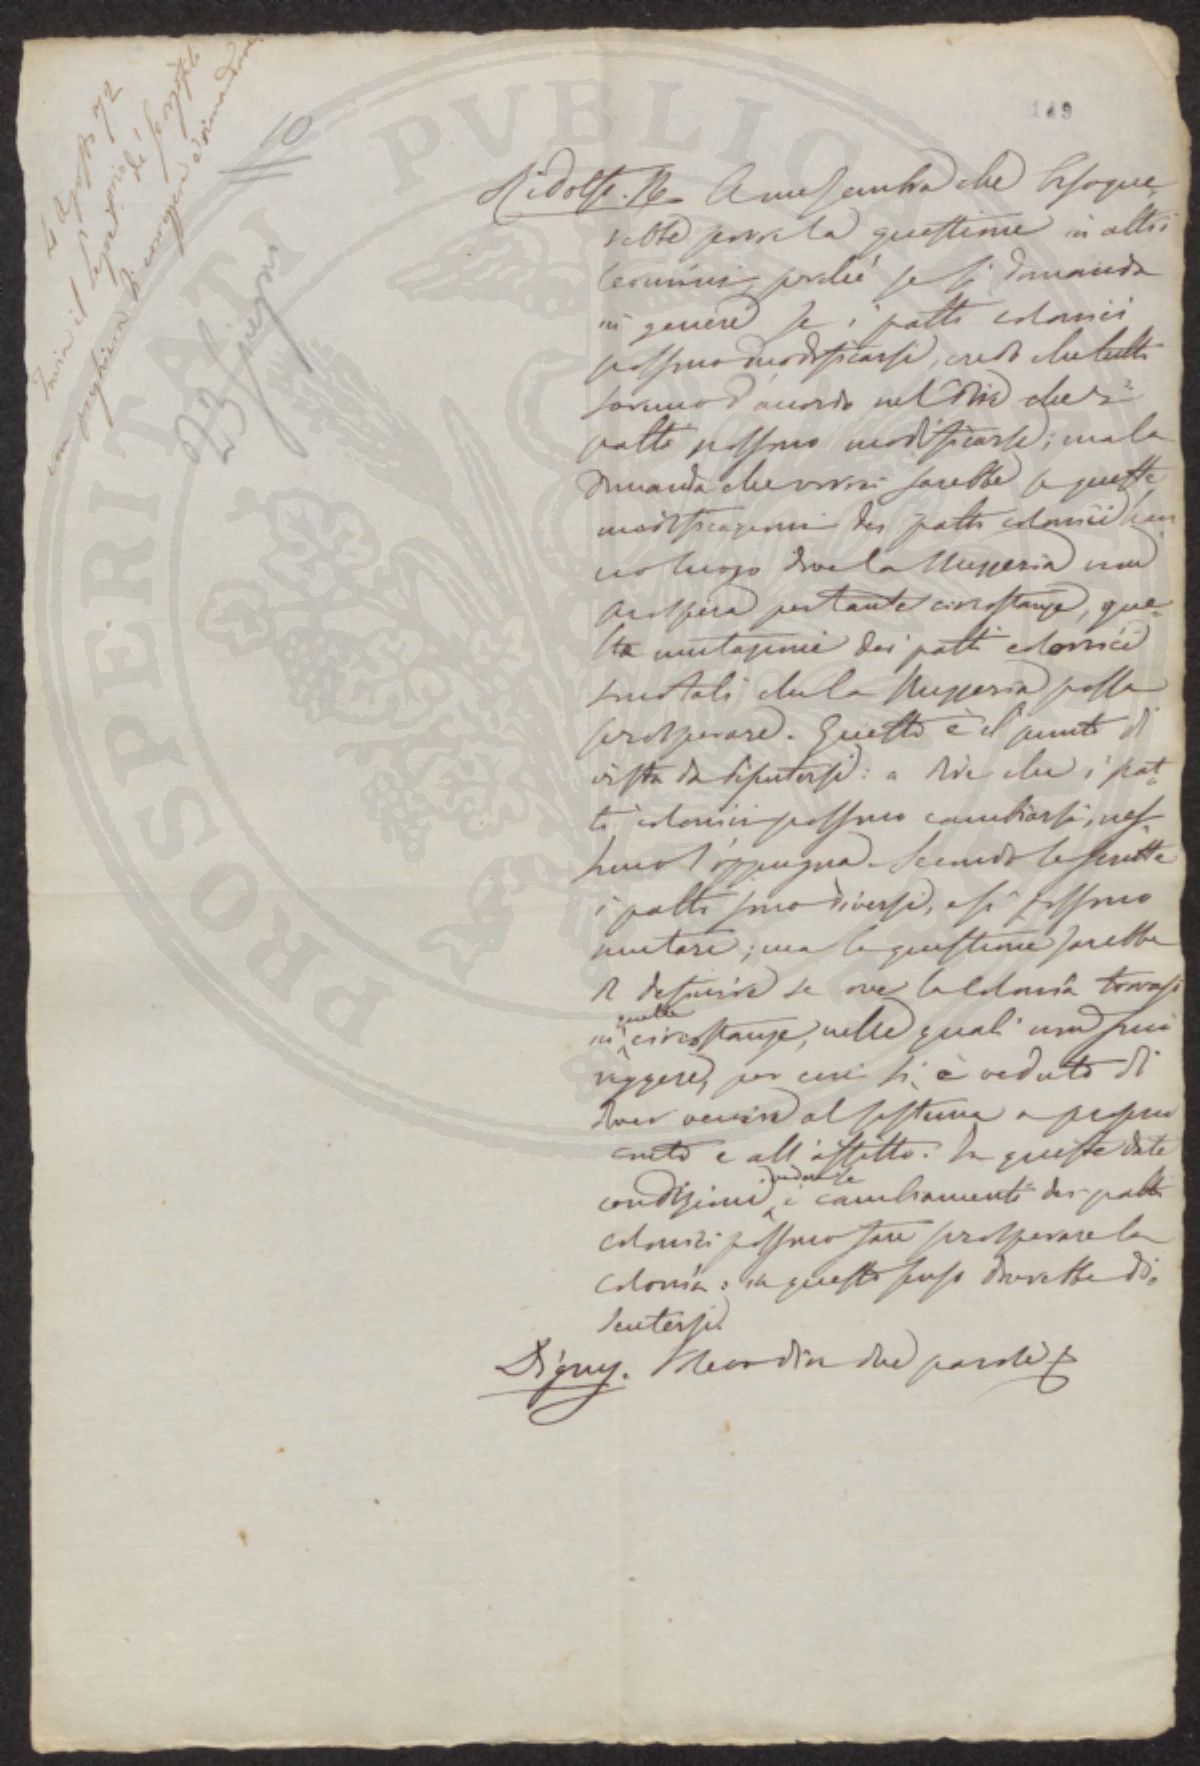 4 Agosto 72
Invia il
con preghiera di correggere e rimandare
10
23 Giugno
169
Ridolfi. A me sembra che bisogne-
rebbe porre la questione in altri
termini, perché se si domanda
in genere se i patti colonici
possono modificarsi, credo che tutti
saremo d'accordo nel dire che i
patti possono modificarsi; ma la
domanda che vorrei sarebbe se queste
modificazioni dei patti colonici han
no luogo dove la Mezzeria non
prospera per tante circostanze, que-
sta mutazione dei patti colonici
sino tali che la Mezzeria possa
prosperare. Questo è il punto di
vista da disputarsi: a dire che i pat-
ti colonici possono cambiarsi, nes-
suno l'oppugna. Secondo le scritte
i patti sono diversi, e si possono
mutare; ma la questione sarebbe
di definire se ove la Colonìa trovasi
in quelle circostanze, nelle quali non può
reggere, per cui si è veduto di
dover venire al sistema a proprio
conto e all'affitto. In queste date
condizioni i cambiamenti dei patti
colonici possono fare prosperare la
colonìa: in questo senso dovrebbe di-
scutersi.
Digny. Vuo dir due parole
PROSPERITATI PVBLICAE